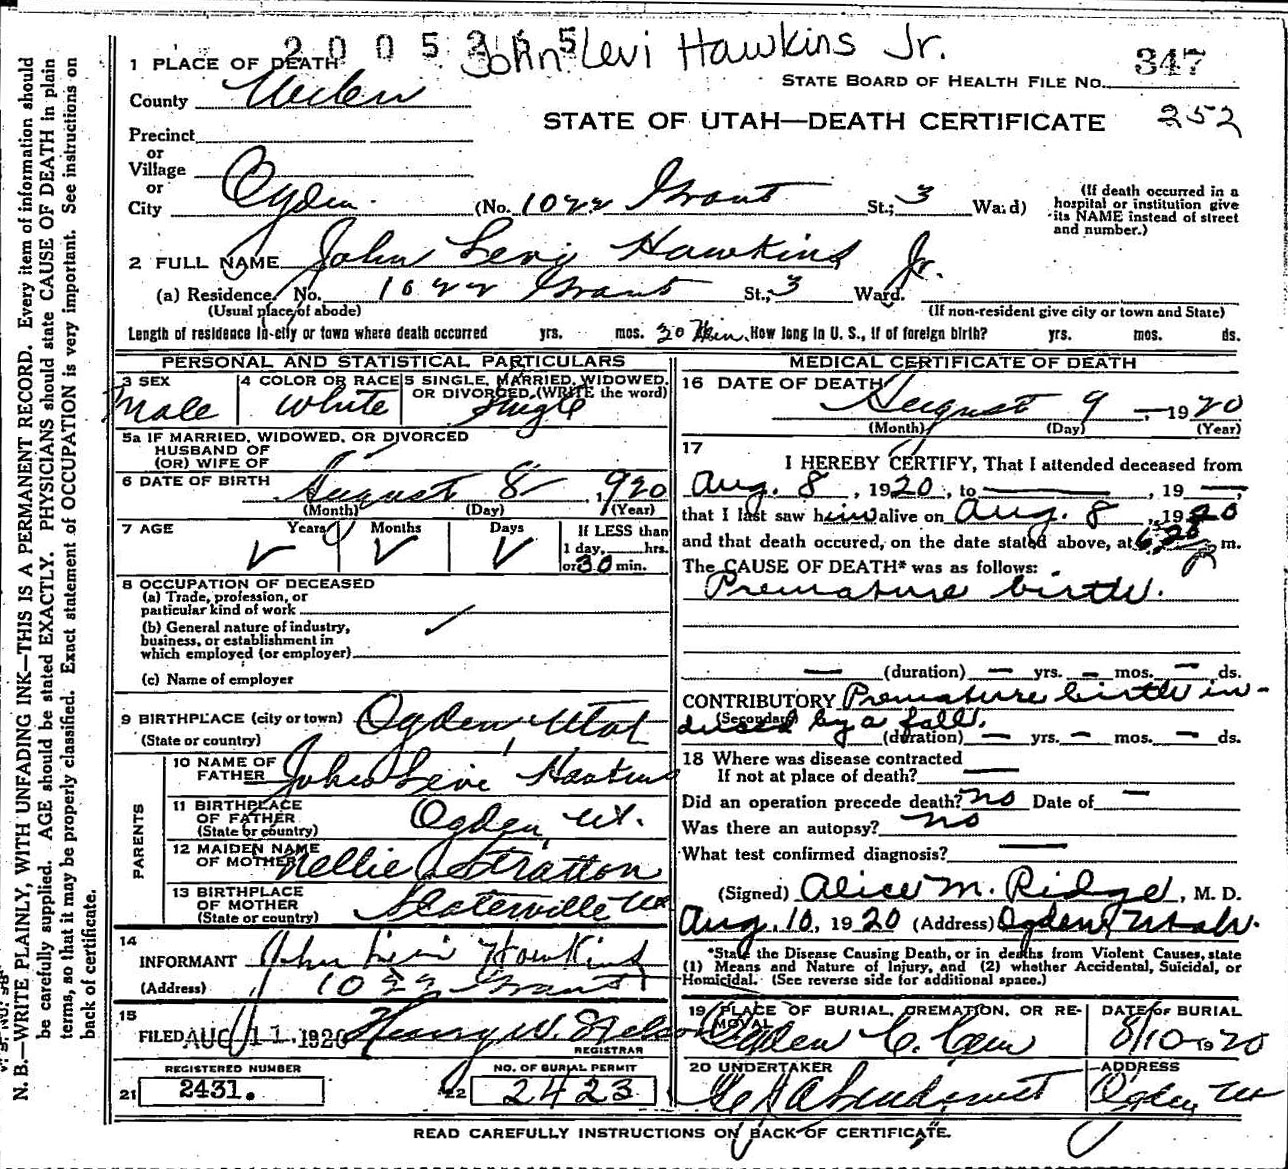 2005265 John Levi Hawkins Jr.
1 PLACE OF DEATH
STATE BOARD OF HEALTH FILE No. 347
County Weber
STATE OF UTAH—DEATH CERTIFICATE 252
Precinct
or
Village
or
City Ogden (No. 1022 Grant St.; 3 Ward)
(If death occurred in a hospital or institution give its NAME instead of street and number.)
2 FULL NAME John Levi Hawkins Jr.
(a) Residence. No. 1022 Grant St., 3 Ward.
(Usual place of abode) (If non-resident give city or town and State)
Length of residence in city or town where death occurred yrs. mos. 30 Min. How long in U. S., if of foreign birth? yrs. mos. ds.
PERSONAL AND STATISTICAL PARTICULARS
3 SEX Male
4 COLOR OR RACE White
5 SINGLE, MARRIED, WIDOWED, OR DIVORCED, (WRITE the word) Single
5a IF MARRIED, WIDOWED, OR DIVORCED
HUSBAND OF
(OR) WIFE OF
6 DATE OF BIRTH August 8 1920
(Month) (Day) (Year)
7 AGE Years Months Days If LESS than
1 day, hrs.
or 30 min.
8 OCCUPATION OF DECEASED
(a) Trade, profession, or
particular kind of work
(b) General nature of industry,
business, or establishment in
which employed (or employer)
(c) Name of employer
9 BIRTHPLACE (city or town) Ogden, Utah
(State or country)
PARENTS
10 NAME OF
FATHER John Levi Hawkins
11 BIRTHPLACE
OF FATHER
(State or country) Ogden, Ut.
12 MAIDEN NAME
OF MOTHER Nellie Stratton
13 BIRTHPLACE
OF MOTHER
(State or country) Slaterville Ut
14
INFORMANT John Levi Hawkins
(Address) 1022 Grant
15
FILED AUG 11 1920 Henry W. Nelson
REGISTRAR
REGISTERED NUMBER
21 2431.
NO. OF BURIAL PERMIT
22 2423
MEDICAL CERTIFICATE OF DEATH
16 DATE OF DEATH
August 9 1920
(Month) (Day) (Year)
17
I HEREBY CERTIFY, That I attended deceased from
Aug. 8, 1920, to , 19 ,
that I last saw him alive on Aug. 8, 1920
and that death occured, on the date stated above, at 6:20 P m.
The CAUSE OF DEATH* was as follows:
Premature birth.
(duration) yrs. mos. ds.
CONTRIBUTORY Premature birth in-
(Secondary) duced by a fall.
(duration) yrs. mos. ds.
18 Where was disease contracted
If not at place of death?
Did an operation precede death? no Date of
Was there an autopsy? no
What test confirmed diagnosis?
(Signed) Alice M. Ridge, M. D.
Aug. 10, 1920 (Address) Ogden, Utah.
*State the Disease Causing Death, or in deaths from Violent Causes, state
(1) Means and Nature of Injury, and (2) whether Accidental, Suicidal, or
Homicidal. (See reverse side for additional space.)
19 PLACE OF BURIAL, CREMATION, OR RE-
MOVAL Ogden C. Cem
DATE of BURIAL
8/10 1920
20 UNDERTAKER
ADDRESS
Ogden Ut
READ CAREFULLY INSTRUCTIONS ON BACK OF CERTIFICATE.
N. B.—WRITE PLAINLY, WITH UNFADING INK—THIS IS A PERMANENT RECORD. Every item of information should
be carefully supplied. AGE should be stated EXACTLY. PHYSICIANS should state CAUSE OF DEATH in plain
terms, so that it may be properly classified. Exact statement of OCCUPATION is very important. See instructions on
back of certificate.